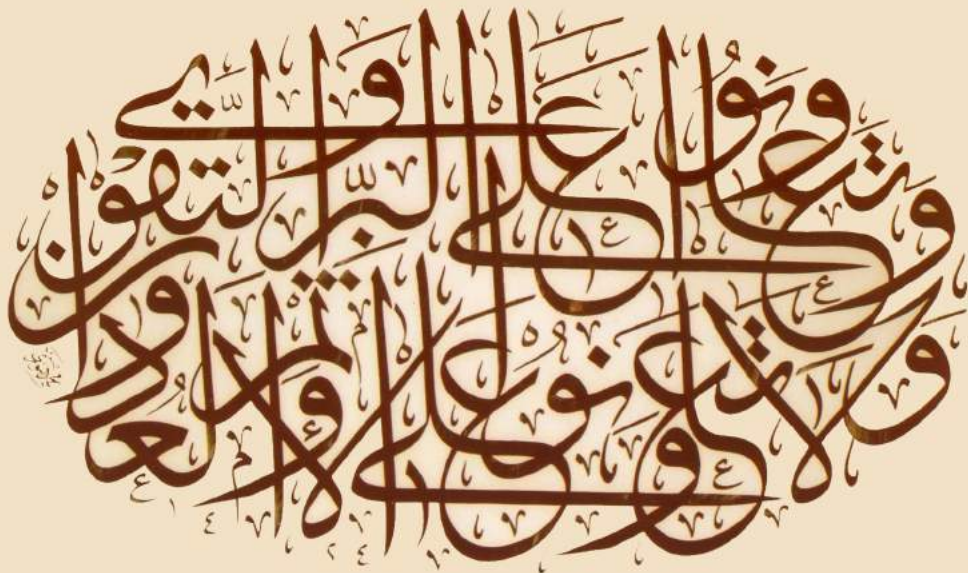 وَتَعَاوَنُوا عَلَى الْبِرِّ وَالتَّقْوَىٰ
وَلَا تَعَاوَنُوا عَلَى الْإِثْمِ وَالْعُدْوَانِ